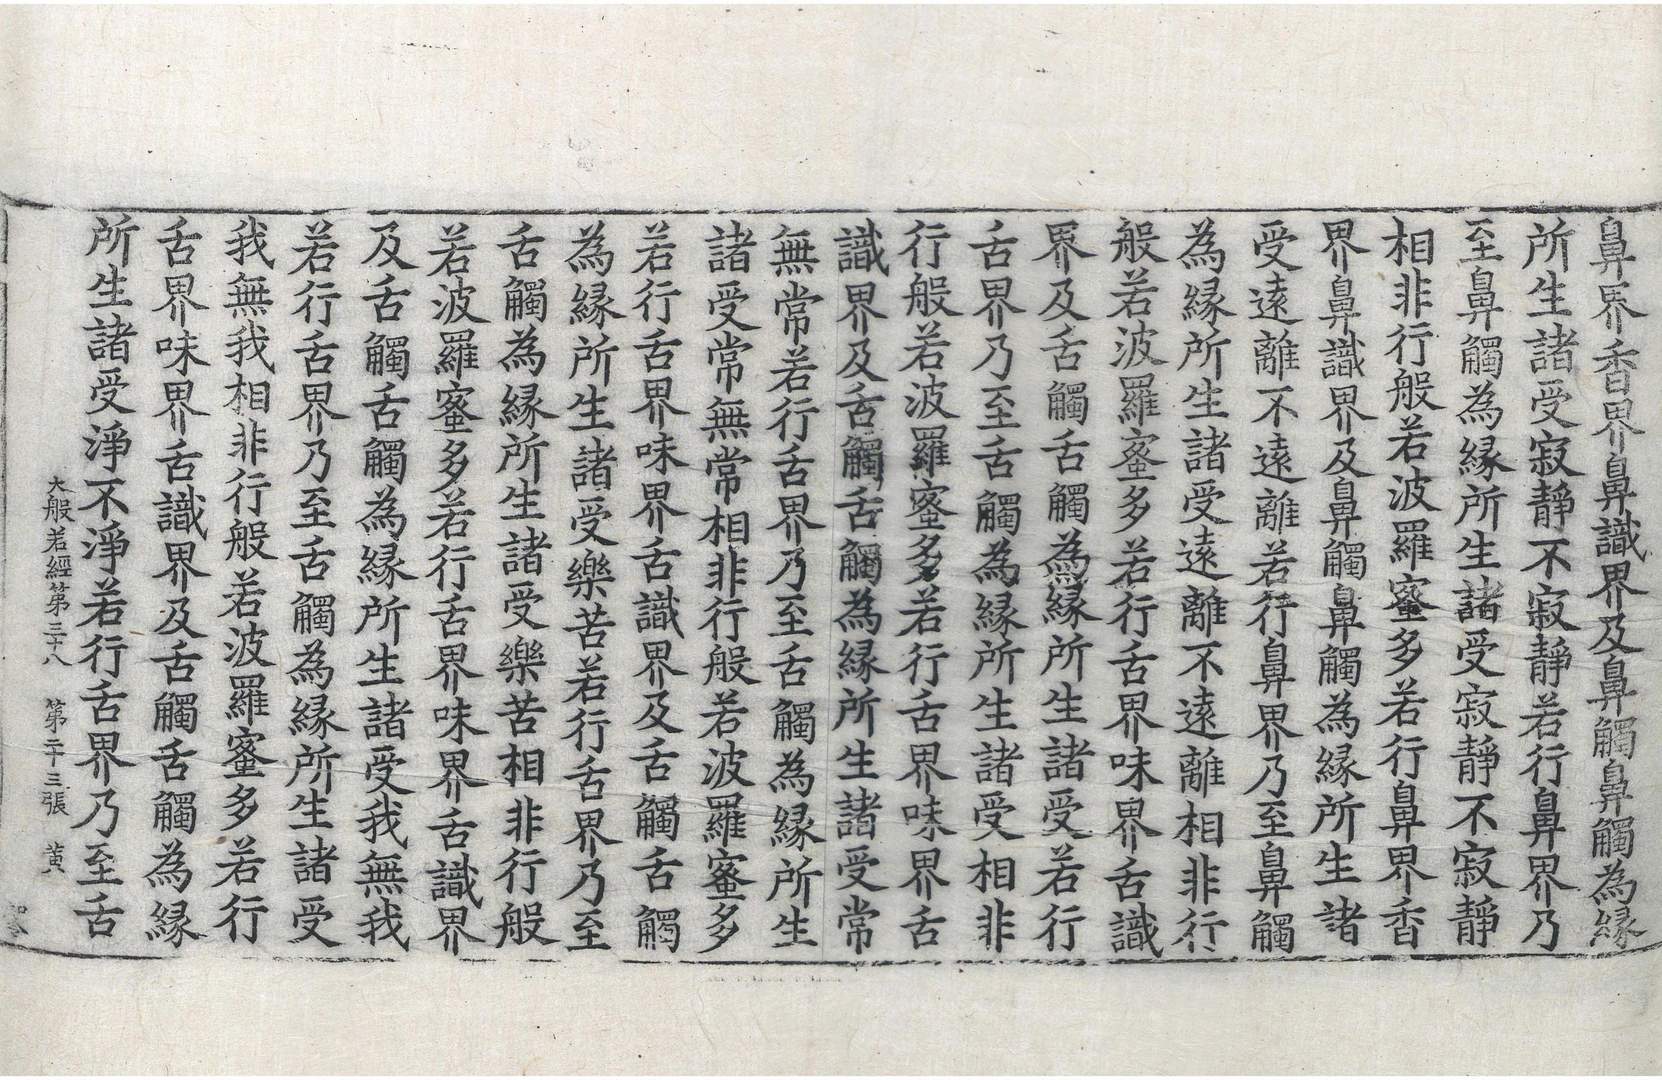 鼻界香界鼻識界及鼻觸鼻觸為緣
所生諸受寂靜不寂靜若行鼻界乃
至鼻觸為緣所生諸受寂靜不寂靜
相非行般若波羅蜜多若行鼻界香
界鼻識界及鼻觸鼻觸為緣所生諸
受遠離不遠離若行鼻界乃至鼻觸
為緣所生諸受遠離不遠離相非行
般若波羅蜜多若行舌界味界舌識
界及舌觸舌觸為緣所生諸受若行
舌界乃至舌觸為緣所生諸受相非
行般若波羅蜜多若行舌界味界舌
識界及舌觸舌觸為緣所生諸受常
無常若行舌界乃至舌觸為緣所生
諸受常無常相非行般若波羅蜜多
若行舌界味界舌識界及舌觸舌觸
為緣所生諸受樂苦若行舌界乃至
舌觸為緣所生諸受樂苦相非行般
若波羅蜜多若行舌界味界舌識界
及舌觸舌觸為緣所生諸受我無我
若行舌界乃至舌觸為緣所生諸受
我無我相非行般若波羅蜜多若行
舌界味界舌識界及舌觸舌觸為緣
所生諸受淨不淨若行舌界乃至舌
大般若經第三十八 第二十三張 黃